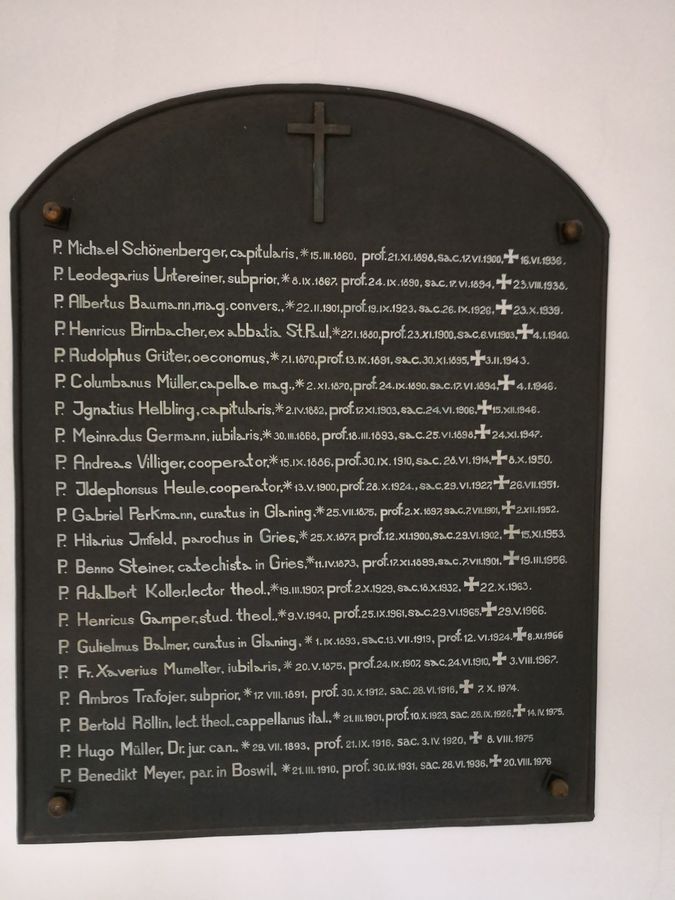 P. Michael Schönenberger, capitularis, *15.III.1860, prof. 21.XI.1898, sac. 17.VI.1900, ✠ 16.VI.1936.
P. Leodegarius Untereiner, subprior, *8.IX.1867, prof. 24.IX.1890, sac. 17.VI.1894, ✠ 23.VIII.1938.
P. Albertus Baumann, mag. convers., *22.II.1901, prof. 19.IX.1923, sac. 26.IX.1926, ✠ 23.X.1939.
P. Henricus Birnbacher, ex abbatia St. Pául, *27.I.1880, prof. 23.XI.1900, sac. 6.VI.1903, ✠ 4.I.1940.
P. Rudolphus Grüter, oeconomus, *7.I.1870, prof. 13.IX.1891, sac. 30.XI.1895, ✠ 3.II.1943.
P. Columbanus Müller, capellae mag., *2.XI.1870, prof. 24.IX.1890, sac. 17.VI.1894, ✠ 4.I.1946.
P. Jgnatius Helbling, capitularis, *2.IV.1882, prof. 17.XI.1903, sac. 24.VI.1906, ✠ 15.XII.1946.
P. Meinradus Germann, iubilaris, *30.III.1868, prof. 18.III.1893, sac. 25.VI.1898 ✠ 24.XI.1947.
P. Andreas Villiger, cooperator, *15.IX.1886, prof. 30.IX.1910, sac. 28.VI.1914, ✠ 8.X.1950.
P. Jldephonsus Heule, cooperator, *13.V.1900, prof. 28.X.1924., sac. 29.VI.1927, ✠ 26.VII.1951.
P. Gabriel Perkmann, curatus in Glaning, *25.VII.1875, prof. 2.X.1897, sac. 7.VII.1901, ✠ 2.XII.1952.
P. Hilarius Jmfeld, parochus in Gries, *25.X.1877, prof. 12.XI.1900, sac. 29.VI.1902, ✠ 15.XI.1953.
P. Benno Steiner, catechista in Gries, *11.IV.1873, prof. 17.XI.1899, sac. 7.VII.1901. ✠ 19.III.1956.
P. Adalbert Koller, lector theol., *19.III.1907, prof. 2.X.1929, sac. 18.X.1932, ✠ 22.X.1963.
P. Henricus Gamper, stud. theol., *9.V.1940, prof. 25.IX.1961, sac. 29.VI.1965, ✠ 29.V.1966.
P. Gulielmus Balmer, curatus in Glaning, *1.IX.1893, sac. 13.VII.1919, prof. 12.VI.1924, ✠ 8.XI.1966
P. Fr. Xaverius Mumelter, iubilaris, *20.V.1875, prof. 24.IX.1907, sac. 24.VI.1910, ✠ 3.VIII.1967.
P. Ambros Trafojer, subprior, *17.VIII.1891, prof. 30.X.1912, sac. 28.VI.1916, ✠ 7.X.1974.
P. Bertold Röllin, lect. theol., cappellanus ital., *21.III.1901, prof. 10.X.1923, sac. 26.IX.1926, ✠ 14.IV.1975.
P. Hugo Müller, Dr. jur. can., *29.VII.1893, prof. 21.IX.1916, sac. 3.IV.1920, ✠ 8.VIII.1975
P. Benedikt Meyer, par. in Boswil, *21.III.1910, prof. 30.IX.1931, sac. 28.VI.1936, ✠ 20.VIII.1976